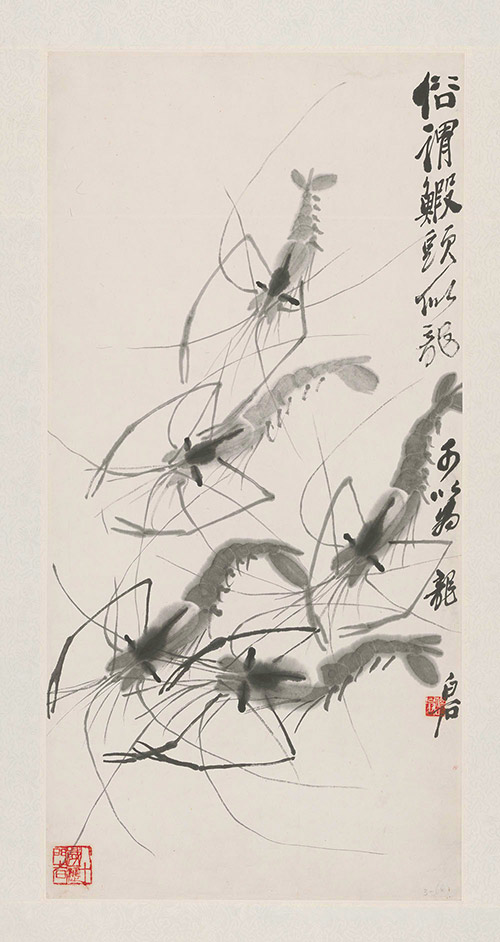 俗謂鰕頭似龍
以為龍
白石